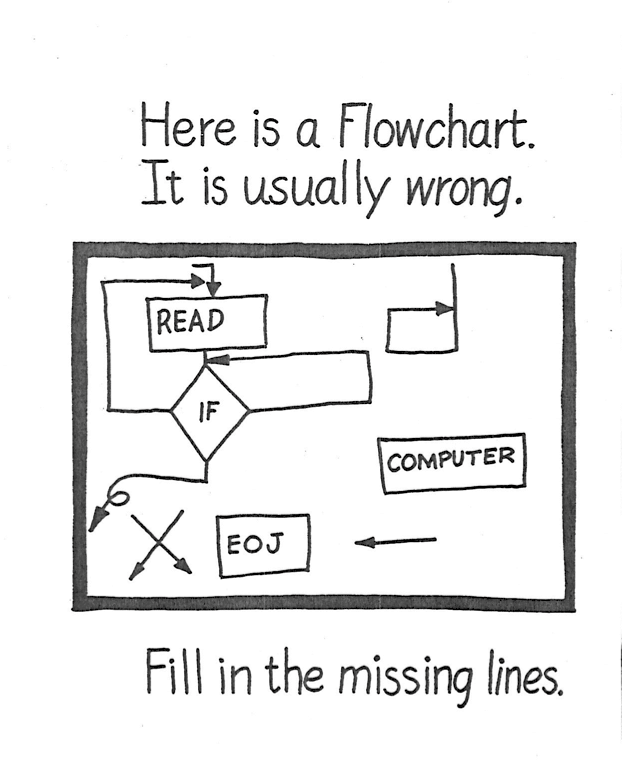 Here is a Flowchart.
It is usually wrong.
READ
IF
COMPUTER
EOJ
Fill in the missing lines.